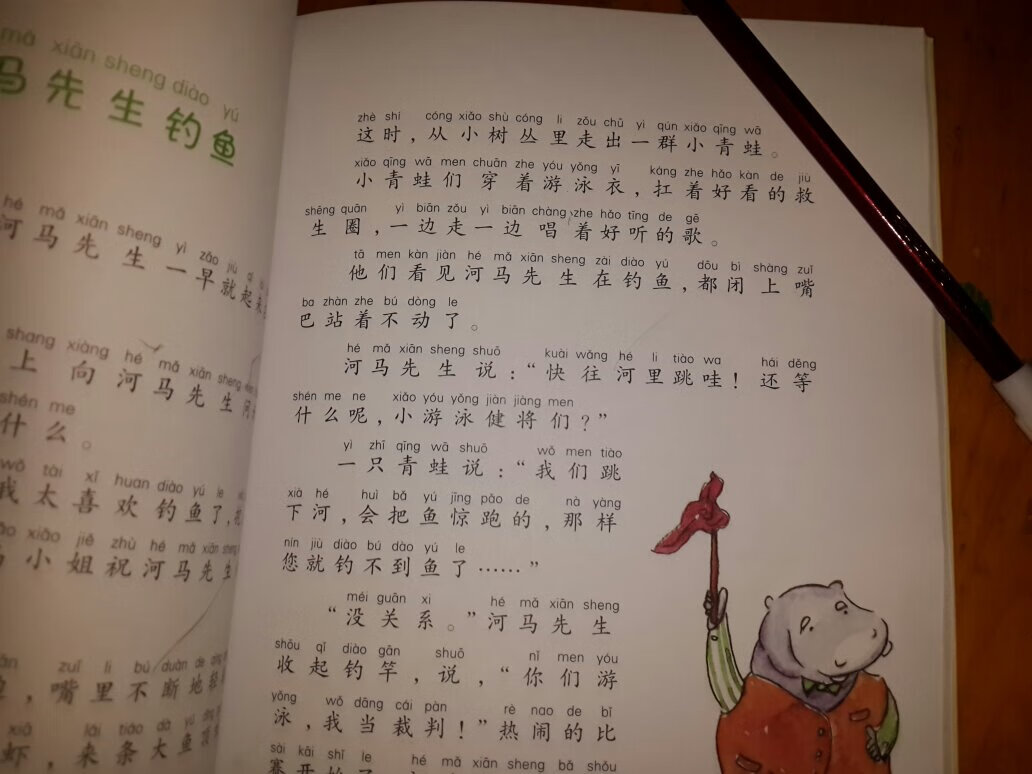 mǎ xiān sheng diào yú
马先生钓鱼
hé mǎ xiān sheng yì zǎo jiù
河马先生一早就起来
shang xiàng hé mǎ xiān sheng
上向河马先生问
shén me
什么。
wǒ tài xǐ huan diào yú le
我太喜欢钓鱼了,
xiǎo jiě zhù hé mǎ xiān sheng
小姐祝河马先生
zuǐ li bú duàn de
,嘴里不断地
xiā lái tiáo dà yú
虾,来条大鱼
zhè shí cóng xiǎo shù cóng li zǒu chū yì qún xiǎo qīng wā
这时,从小树丛里走出一群小青蛙。
xiǎo qīng wā men chuān zhe yóu yǒng yī káng zhe hǎo kàn de jiù
小青蛙们穿着游泳衣,扛着好看的救
shēng quān yì biān zǒu yì biān chàng zhe hǎo tīng de gē
生圈,一边走一边唱着好听的歌。
tā men kàn jiàn hé mǎ xiān sheng zài diào yú dōu bì shàng zuǐ
他们看见河马先生在钓鱼,都闭上嘴
ba zhàn zhe bú dòng le
巴站着不动了。
hé mǎ xiān sheng shuō kuài wǎng hé li tiào wa hái děng
河马先生说:“快往河里跳哇!还等
shén me ne xiǎo yóu yǒng jiàn jiàng men
什么呢,小游泳健将们?”
yì zhī qīng wā shuō wǒ men tiào
一只青蛙说:“我们跳
xià hé huì bǎ yú jīng pǎo de nà yàng
下河,会把鱼惊跑的,那样
nín jiù diào bú dào yú le
您就钓不到鱼了……”
méi guān xi hé mǎ xiān sheng
“没关系。”河马先生
shōu qǐ diào gān shuō nǐ men yóu
收起钓竿,说,“你们游
yǒng wǒ dāng cái pàn rè nao de bǐ
泳,我当裁判!”热闹的比
sài kāi shǐ le hé mǎ xiān sheng bǎ shǒu
赛开始了